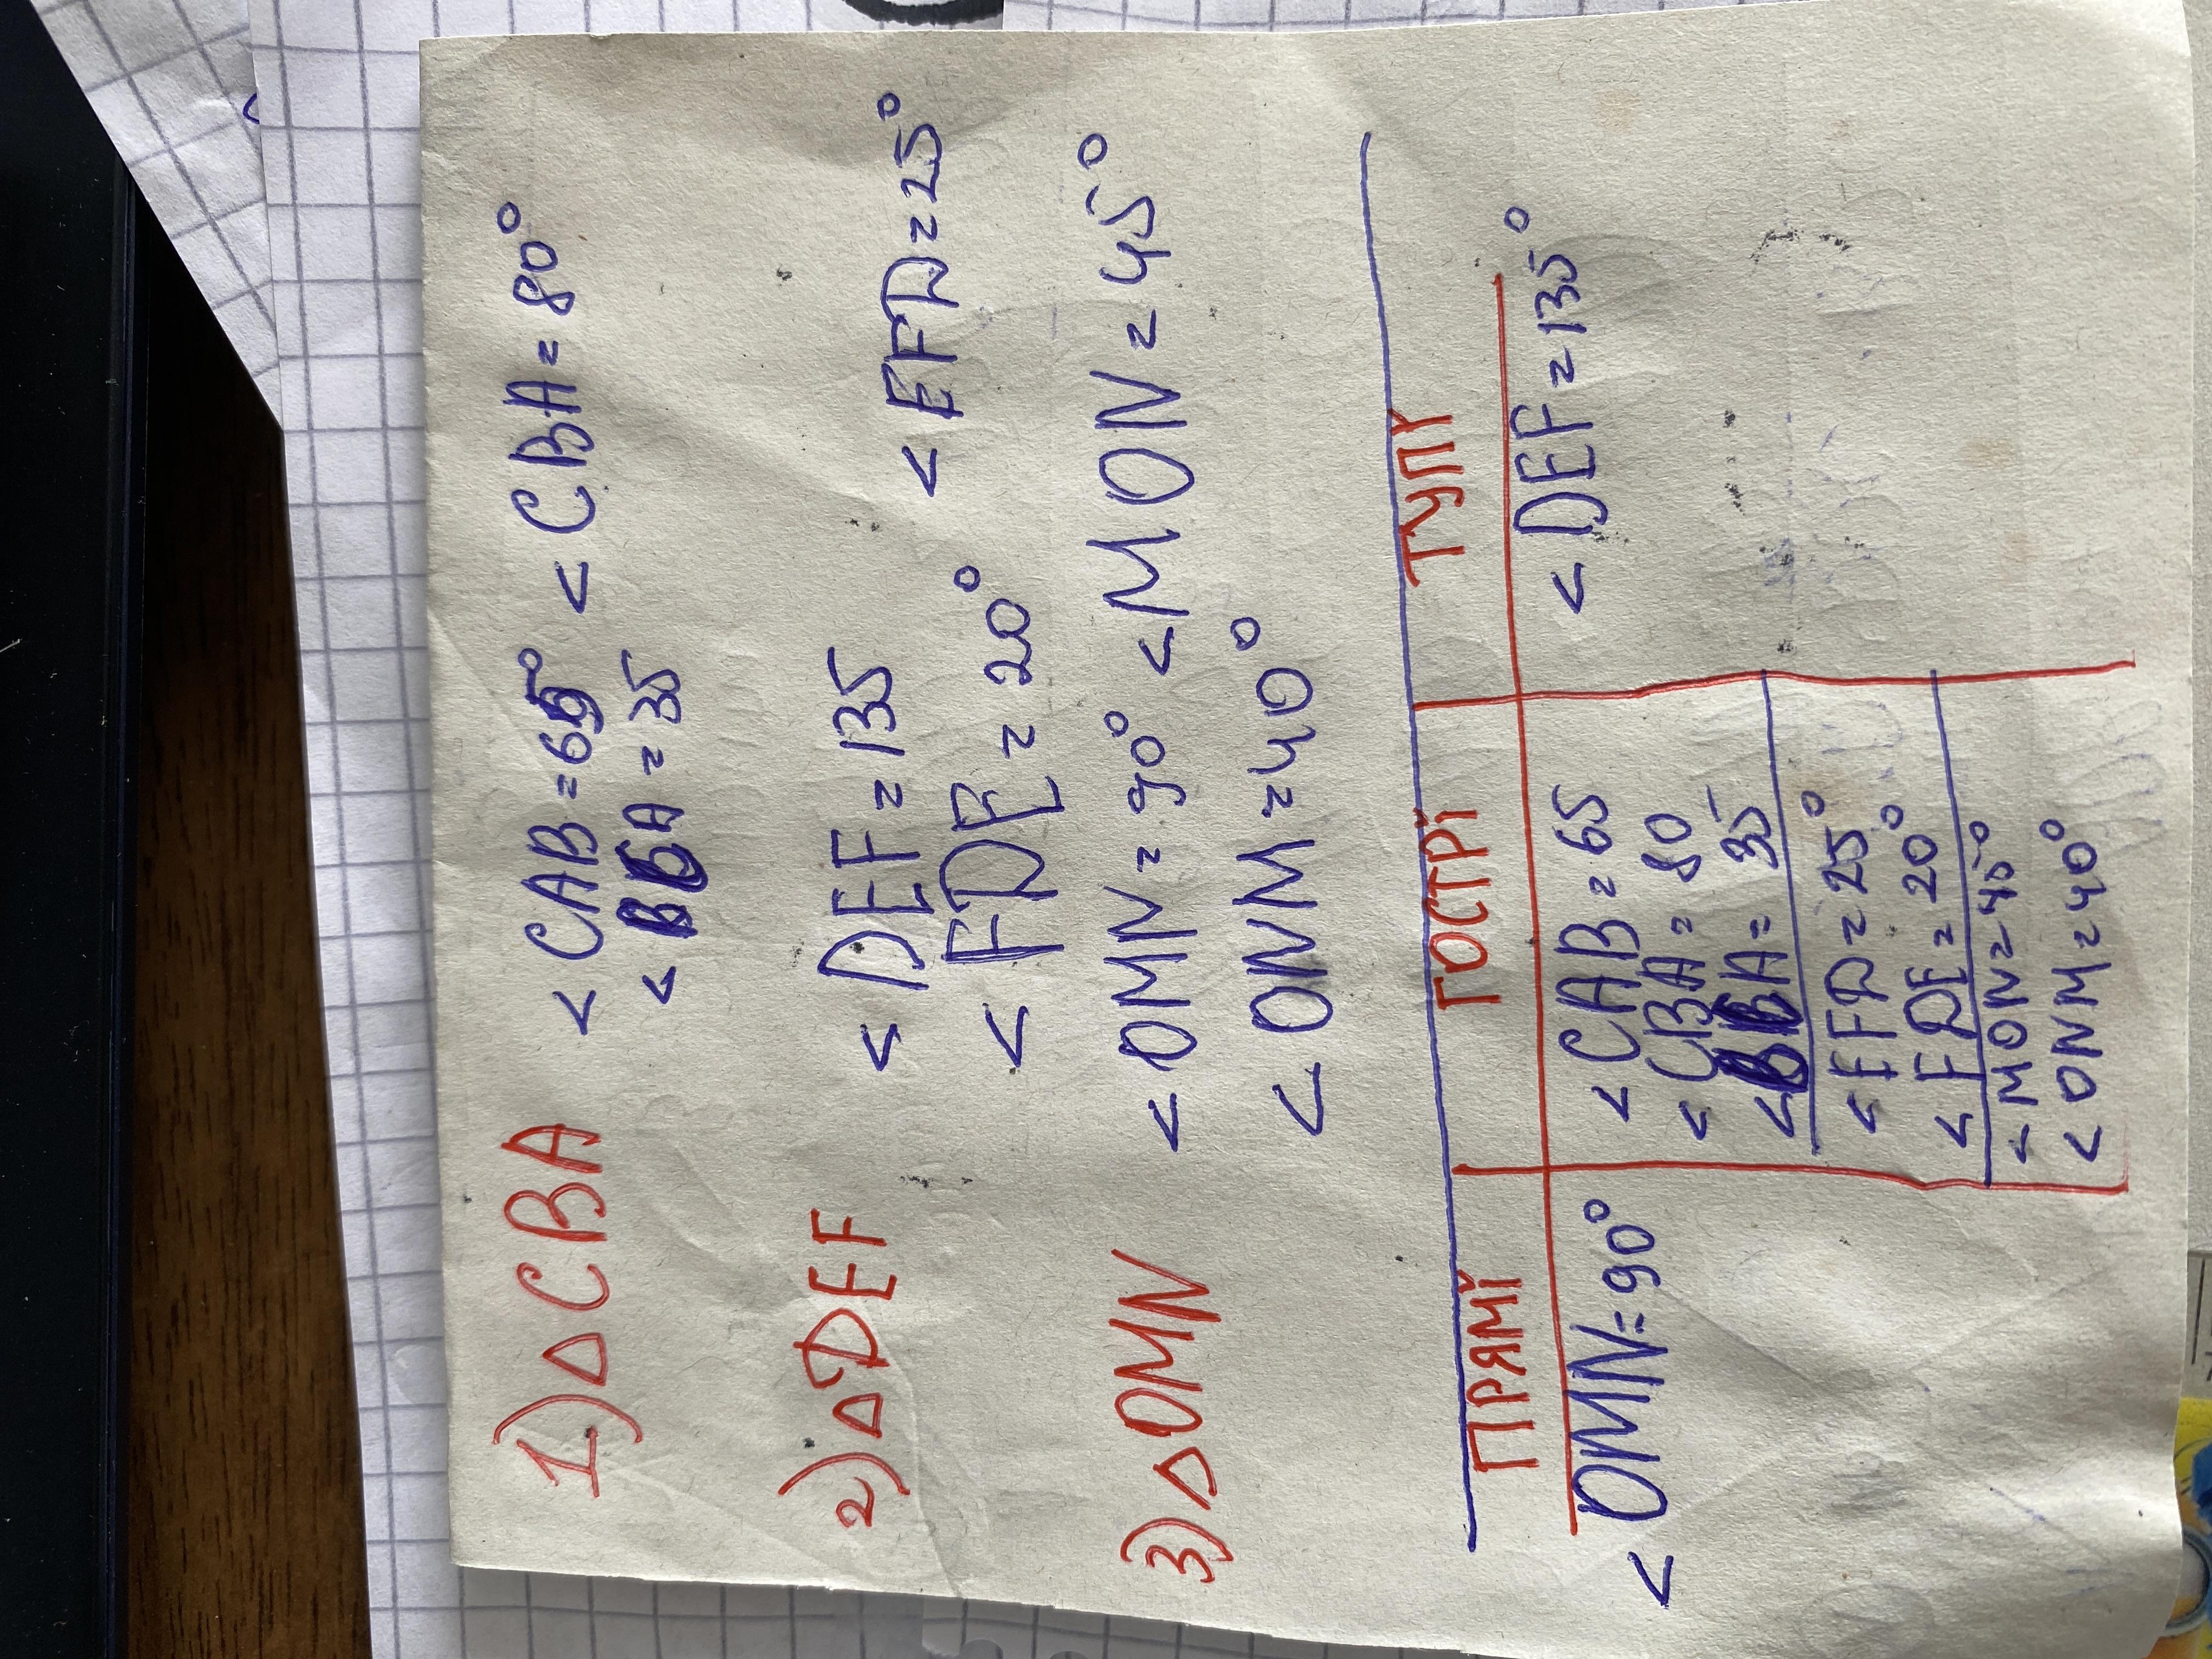 1) △CBA <CAB=65° <CBA=80°
<BCA=35
2) △DEF <DEF=135 <EFD=25°
<FDE=20°
3) △OMN <OMN=90° <MON=45°
<ONM=40°
ПРЯМІ ГОСТРІ ТУПІ
<OMN=90° <CAB=65 <DEF=135°
<CBA=80
<BCA=35
<EFD=25°
<FDE=20°
<MON=45°
<ONM=40°